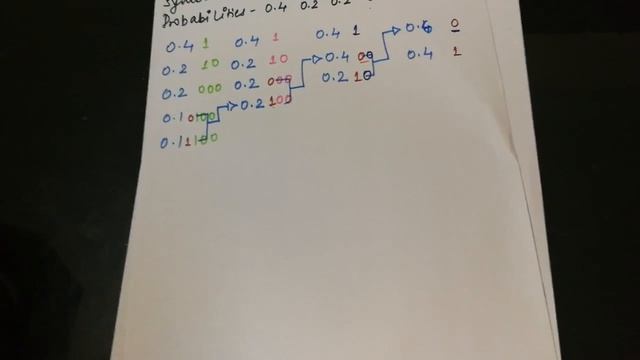 Probabilities - 0.4 0.2 0.2
0.4 1 0.4 1 0.4 1 0.6 0
0.2 10 0.2 10 0.4 00 0.4 1
0.2 000 0.2 000 0.2 10
0.1 0100 0.2 100
0.1 1100